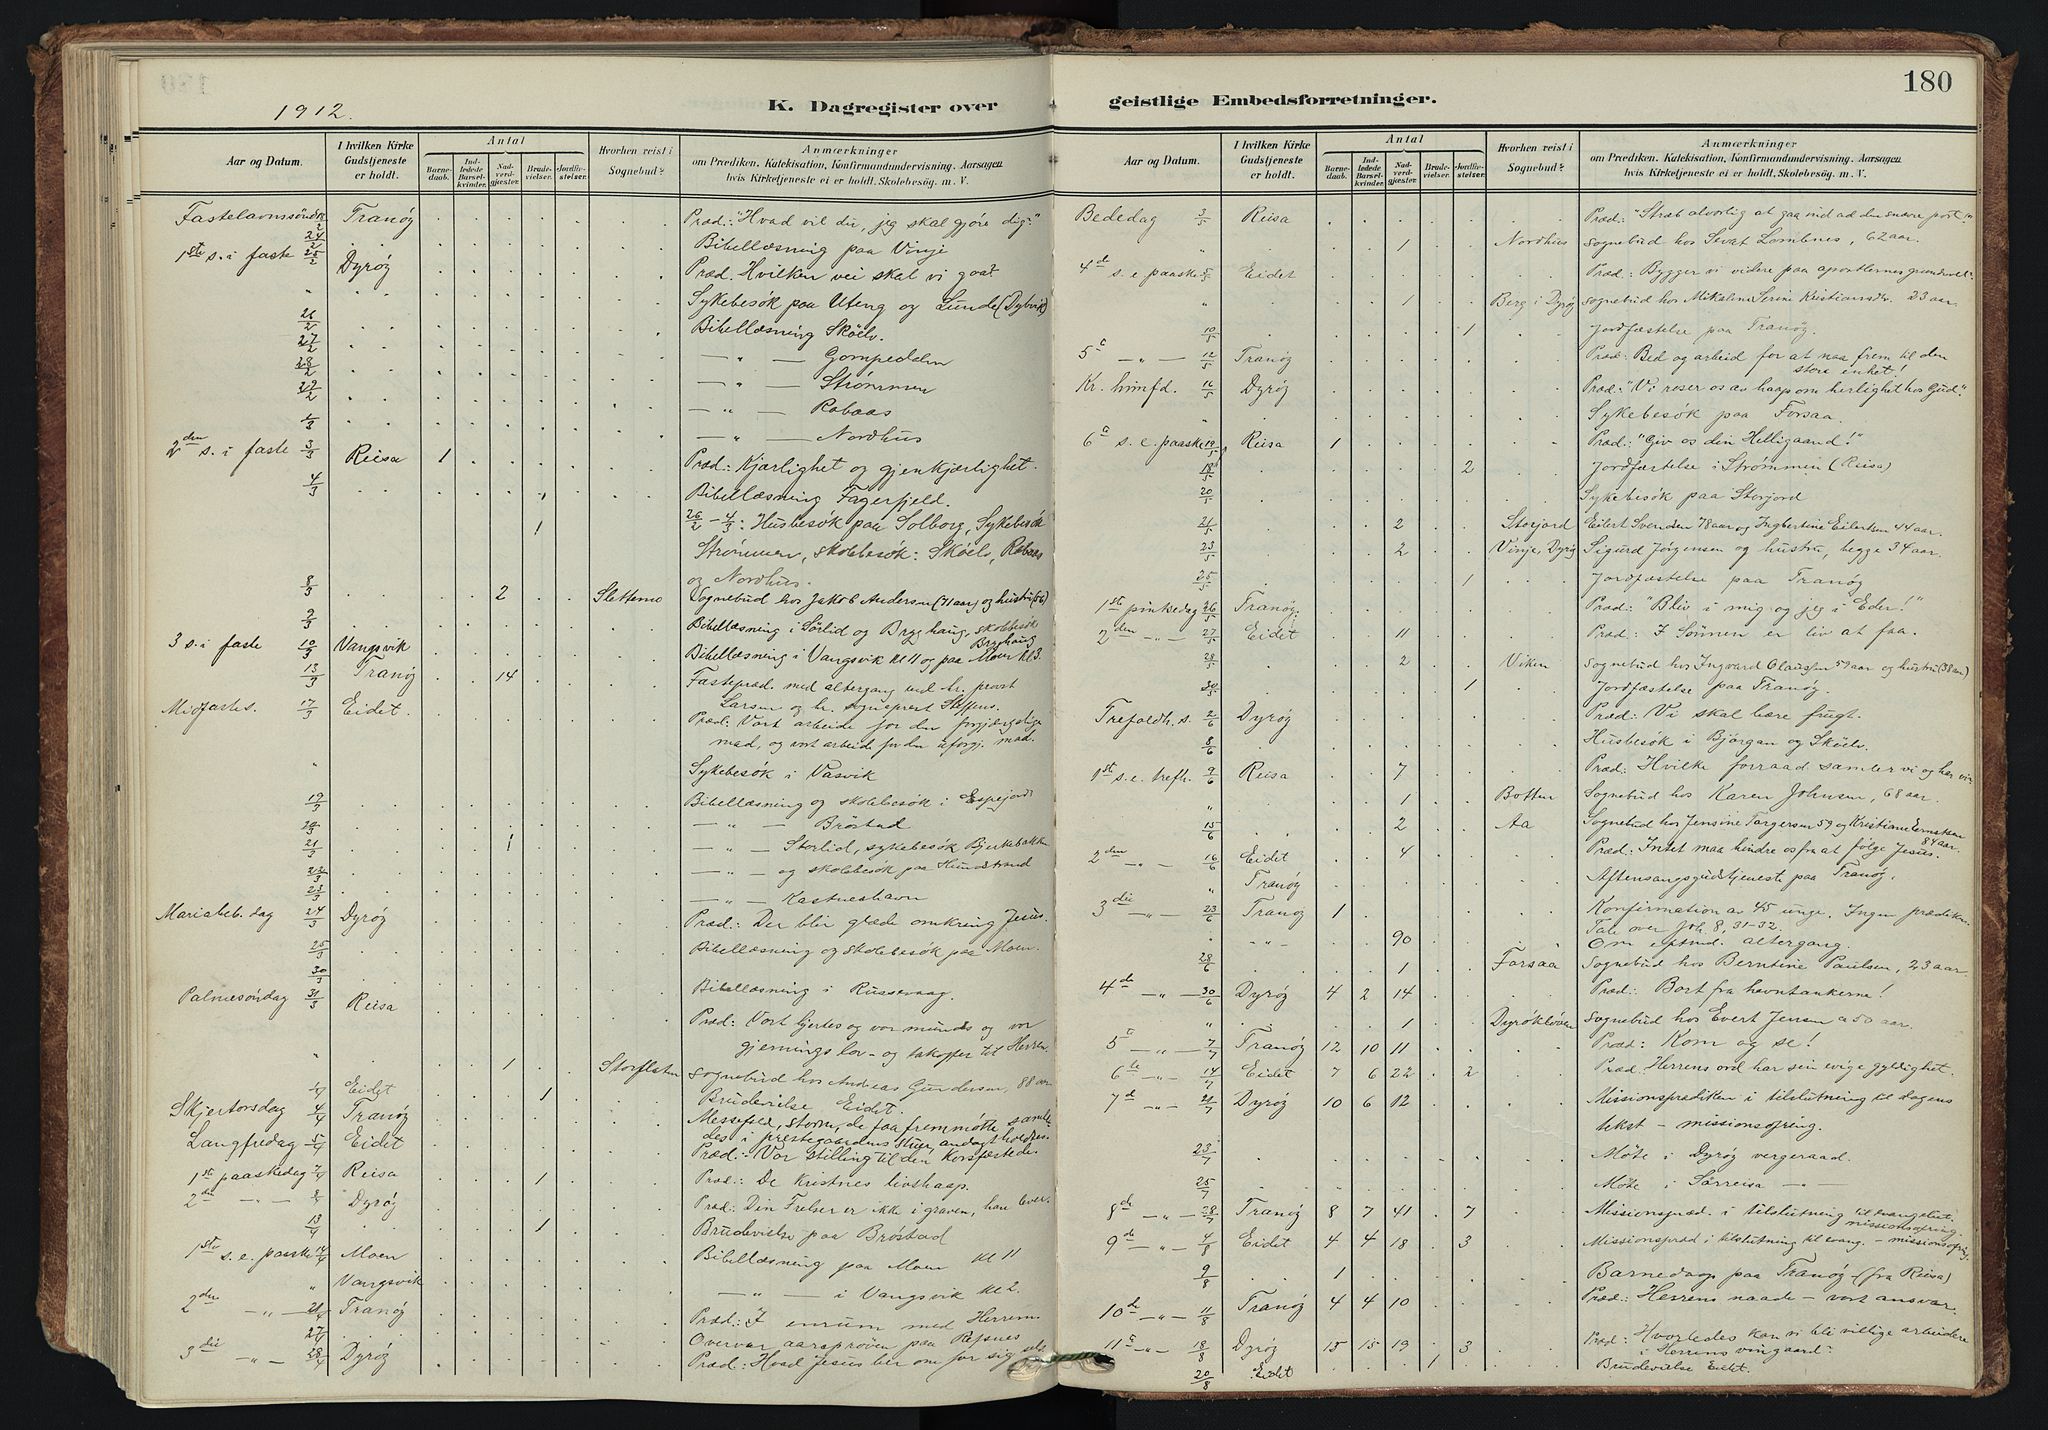 180
1912.
K. Dagregister over geistlige Embedsforretninger.
Aar og Datum.
I hvilken Kirke Gudstjeneste er holdt.
Antal
Barnedaab.
Indledede Barselkvinder.
Nadverdgjester.
Brudevielser.
Jordfæstelser.
Hvorhen reist i Sognebud?
Anmærkninger
om Prædiken, Katekisation, Konfirmandundervisning, Aarsagen
hvis Kirketjeneste ei er holdt, Skolebesøg. m. V.
Tranøy Præd.: "Hvad vil du, jeg skal gjöre dig?"
24/2 Bibellæsning paa Vinje
1ste s. i faste 25/2 Dyrøy Præd. Hvilken vei skal vi gaa?
" Sykebesök paa Uteng og Lunde (Dybvik)
26/2 Bibellæsning Sköelv.
27/2 — " —
28/2 — " — Strømmen
— " — Rabaas
1/3 — " — Nordhus
2den s. i faste 3/3 Reisa 1 Præd.: Kjærlighet og gjenkjærlighet.
4/3 Bibellæsning Fagerfjeld.
26/2 – 4/3: Husbesök paa Solborg, Sykebesök
Strømmen, skolebesök: Sköelv, Rabaas
og Nordhus.
8/3 2 Slettemo Sognebud hos Jakob Andersen (71 aar) og hustru (56)
Bibellæsning i Sörlid og Brygghaug, skolebesök Brygghaug
3 s. i faste 10/3 Vangsvik Bibellæsning i Vangsvik kl 11 og paa Moen kl 3.
13/3 Tranøy 14 Fastepræd. med altergang ved hr. provst
Larsen og hr. sogneprest Steffens.
Midfastes. 17/3 Eidet. Præd.: Vort arbeide for den forgjængelige
mad, og vort arbeide for den uforgj. mad.
" Sykebesök i Vasvik
19/3 Bibellæsning og skolebesök i Espejord
20/3 — " — Bröstad
21/3 1 — " — Storlid, sykebesök Bjerkebakken
22/3 — " — og skolebesök paa
23/3 — " — Kastneshavn
Mariabeb. dag 24/3 Dyrøy Præd.: Der blir glæde omkring Jesus.
25/3 Bibellæsning og skolebesök paa Moen.
30/3 Bibellæsning i Russevaag.
Palmesöndag 31/3 Reisa Præd.: Vort hjertes og vor munds og vor
gjernings lov- og takoffer til Herren.
" 1 Storflaten Sognebud hos Andreas Gundersen, 88 aar
1/4 Eidet 1 Brudevielse Eidet.
Skjertorsdag 4/4 Tranøy Messefald, storm, de faa fremmötte samle-
des i prestegaardens stuer, andagt holdtes.
Langfredag 5/4 Eidet Præd.: Vor stilling til den Korsfæstede.
1ste paaskedag 7/4 Reisa 1 Præd.: De Kristnes livshaap.
2den — " — 8/4 Dyrøy Præd.: Din Frelser er ikke i graven, han lever.
13/4 1 Brudevielse paa Bröstad
1ste s. e. paaske 14/4 Moen Bibellæsning paa Moen kl 11
" Vangsvik — " — i Vangsvik kl 2.
2den — " — 21/4 Tranøy Præd.: I enrum med Herren.
27/4 Overvar aarspröven paa Refsnes
3die — " — 28/4 Dyrøy Præd.: Hvad Jesus ber om for sig selv.
Bededag 3/5 Reisa Præd.: "Stræb alvorlig at gaa ind ad den snævre port!"
" 1 Nordhus Sognebud hos Sivat Lombnes, 62 aar.
4de s. e. paaske 5/5 Eidet Præd.: Bygger vi videre paa apostlernes grundvol?
" 1 Berg i Dyrøy Sognebud hos Mikaline Serine Kristiansdtr. 23 aar.
10/5 1 Jordfæstelse paa Tranøy.
5te — " — 12/5 Tranøy Præd.: Bed og arbeid for at naa frem til den
store enhet!
Kr. himfd. 16/5 Dyrøy Præd.: "Vi roser os av haap om herlighet hos Gud."
" Sykebesök paa Forsaa.
6te s. e. paaske 19/5 Reisa 1 Præd.: "Giv os den Helligaand!"
18/5 2 Jordfæstelse i Strømmen (Reisa)
20/5 Sykebesök paa Storjord
21/5 2 Storjord Eilert Svendsen 78 aar og Ingbertine Eilertsen 44 aar.
23/5 2 Vinje, Dyrøy Sigurd Jørgensen og hustru, begge 34 aar.
25/5 1 Jordfæstelse paa Tranøy
1ste pinsedag 26/5 Tranøy. Præd.: "Bliv i mig og jeg i Eder!"
2den — " — 27/5 Eidet 11 Præd.: I Sönnen er liv at faa.
28/5 2 Viken Sognebud hos Ingvard Olaussen 59 aar og hustru (38 aar)
30/5 1 Jordfæstelse paa Tranøy.
Trefoldh. s. 2/6 Dyrøy Præd.: Vi skal bære frugt.
8/6 Husbesök i Bjørgan og Sköelv.
1st s. e. trefh. 9/6 Reisa 7 Præd.: Hvilke forraad samler vi og har vi?
" 1 Botten Sognebud hos Karen Johnsen, 68 aar.
15/6 2 Aa Sognebud hos Jensine Torgersen 59 og Kristiane Ernstsen
84 aar.
2den — " — 16/6 Eidet 4 Præd.: Intet maa hindre os fra at følge Jesus.
" Tranøy Aftensangsgudstjeneste paa Tranøy.
3die — " — 23/6 Tranøy 1 Konfirmation av 45 unge. Ingen prædiken.
Tale over Joh. 8, 31-32.
" — " — 90 Om eftmd. altergang.
28/6 1 Forsaa Sognebud hos Berntine Paulsen, 23 aar.
4de — " — 30/6 Dyrøy 4 2 14 Præd.: Bort fra hevntankerne!
" 1 Dyröklöven Sognebud hos Evert Jensen a 50 aar.
5te — " — 7/7 Tranøy 12 10 11 Præd.: Kom og se!
6te — " — 14/7 Eidet 7 6 22 2 Præd. Herrens ord har sin evige gyldighet.
7de — " — 21/7 Dyrøy 10 6 12 Missionsprædiken i tilslutning til dagens
tekst – missionsofring.
23/7 Möte i Dyrøy vergeraad.
25/7 Möte i Sörreisa — " —
8de — " — 28/7 Tranøy 8 7 41 7 Missionspræd. i tilslutning til evangeliet.
missionsofring.
9de — " — 4/8 Eidet 4 4 18 3 Missionspræd i tilslutning til evang. – missionsofring.
9/8 1 Barnedaap paa Tranøy (fra Reisa)
10de — " — 11/8 Tranøy 4 4 10 Præd.: Herrens naade – vort ansvar.
11te — " — 18/8 Dyrøy 15 15 19 3 Præd.: Hvorledes kan vi bli villige arbeidere
i Herrens vingaard?
20/8 Eidet 1 Brudevielse Eidet.